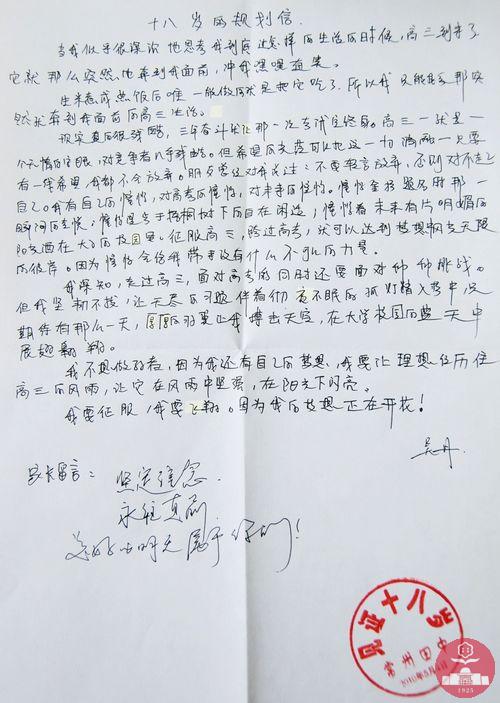 十八岁的规划信
当我似乎很深沉地思考我到底过怎样的生活的时候，高三到来了
它就那么突然地奔到我面前，冲我嘿嘿直笑
生米煮成熟饭后唯一能做的就是把它吃了，所以我只能接受那突
然就奔到我面前的高三生活。
现实真的很残酷，三年奋斗就让那一次考试定终身。高三一状是一
个无情的字眼，对竞争者几乎残酷。但希望的火苗可以把这一切消融，只要
有一线希望，我都不会放弃。朋友曾经对我说过：不要轻言放弃，否则对不起
自己。我有自己的憧憬，对高考的憧憬，对未来的憧憬。憧憬金榜题名时那一
瞬间的喜悦；憧憬是在梧桐树下的自在闲适；憧憬着未来有片明媚的
阳光洒在大学的校园里。征服高三，跨过高考，就可以达到梦想的天限
的彼岸。因为憧憬会给我带来没有什么不可以的力量。
我深知，走过高三，面对高考的同时还要面对种种挑战。
但我坚韧不拔，让无尽的习题伴着彻夜不眠的孤灯植入梦中，只
期待有那么一天，的羽翼让我搏击天空，在大学校园的蓝天中
展翅翱翔。
我不想做弱者，因为我还有自己的梦想，我要让理想经历住
高三的风雨，让它在风雨中坚强，在阳光下闪亮。
我要征服，我要飞翔。因为我的梦想正在开花！
吴丹
家长留言：
坚定信念
永往直前
美好的明天属于你们！
见证十八岁
常州田中
2010年5月4日
1925